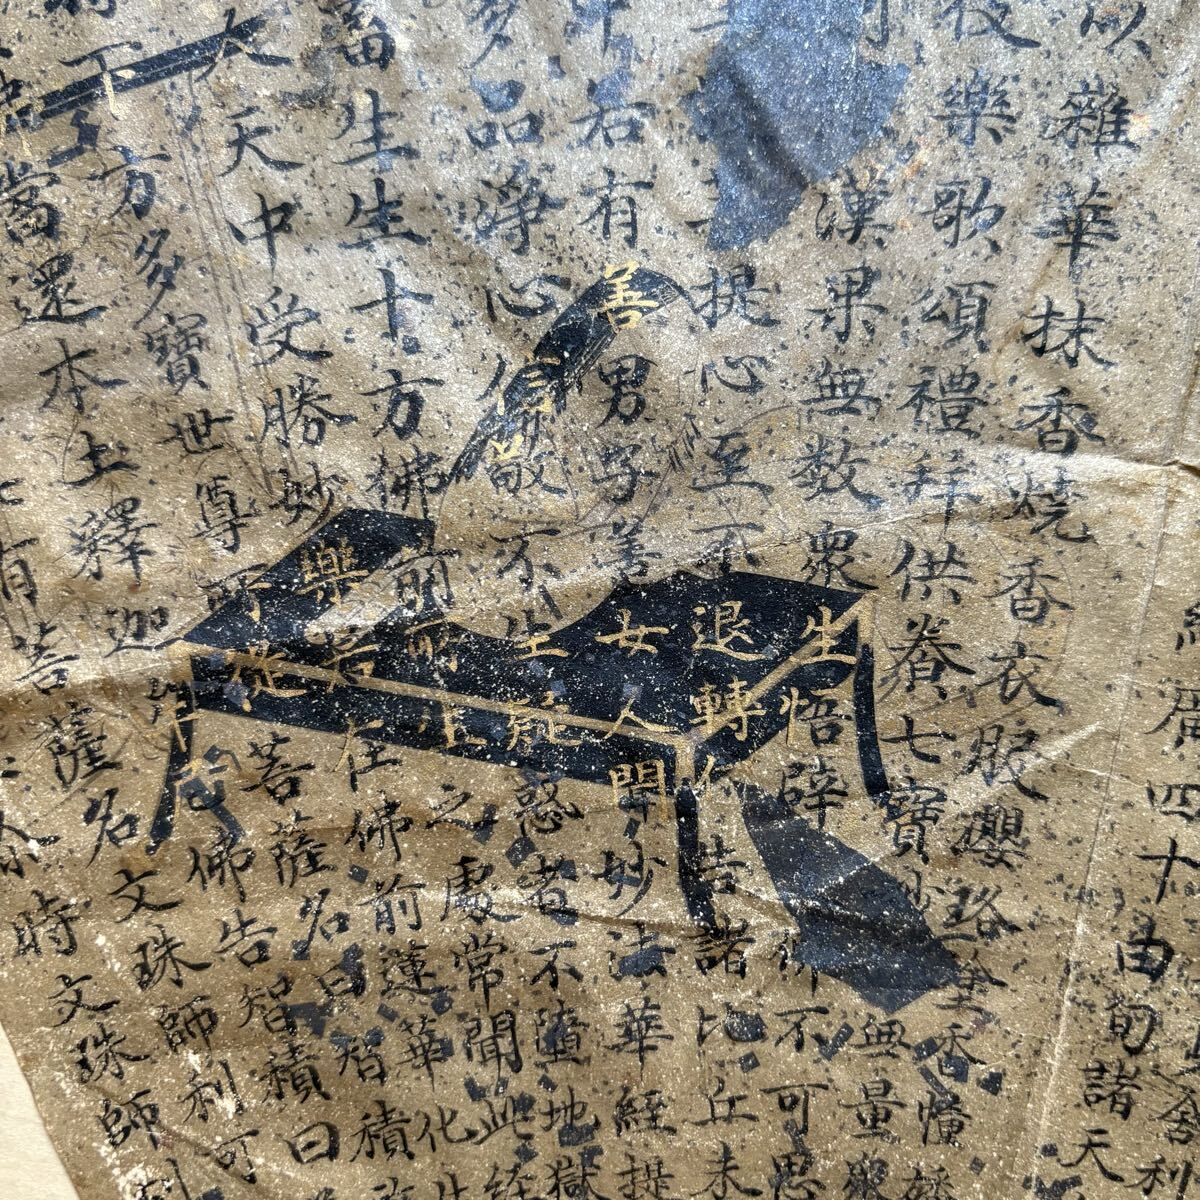 舍利
廣四十由旬諸天
以雜華抹香燒香衣服瓔珞塗香幢
伎樂歌頌禮拜供養七寶妙 無量眾
漢果無數衆生悟辟 佛不可思
提心至不退轉佛告諸比丘未
中若有善男子善女人聞妙法華經提
多品淨心信敬不生疑惑者不墮地獄
畜生生十方佛前所生之處常聞此經
人天中受勝妙樂若在佛前蓮華化生
下方多寶世尊所從菩薩名曰智積
佛當還本土釋迦牟尼佛告智積曰
有菩薩名文殊師利可
時文殊師利